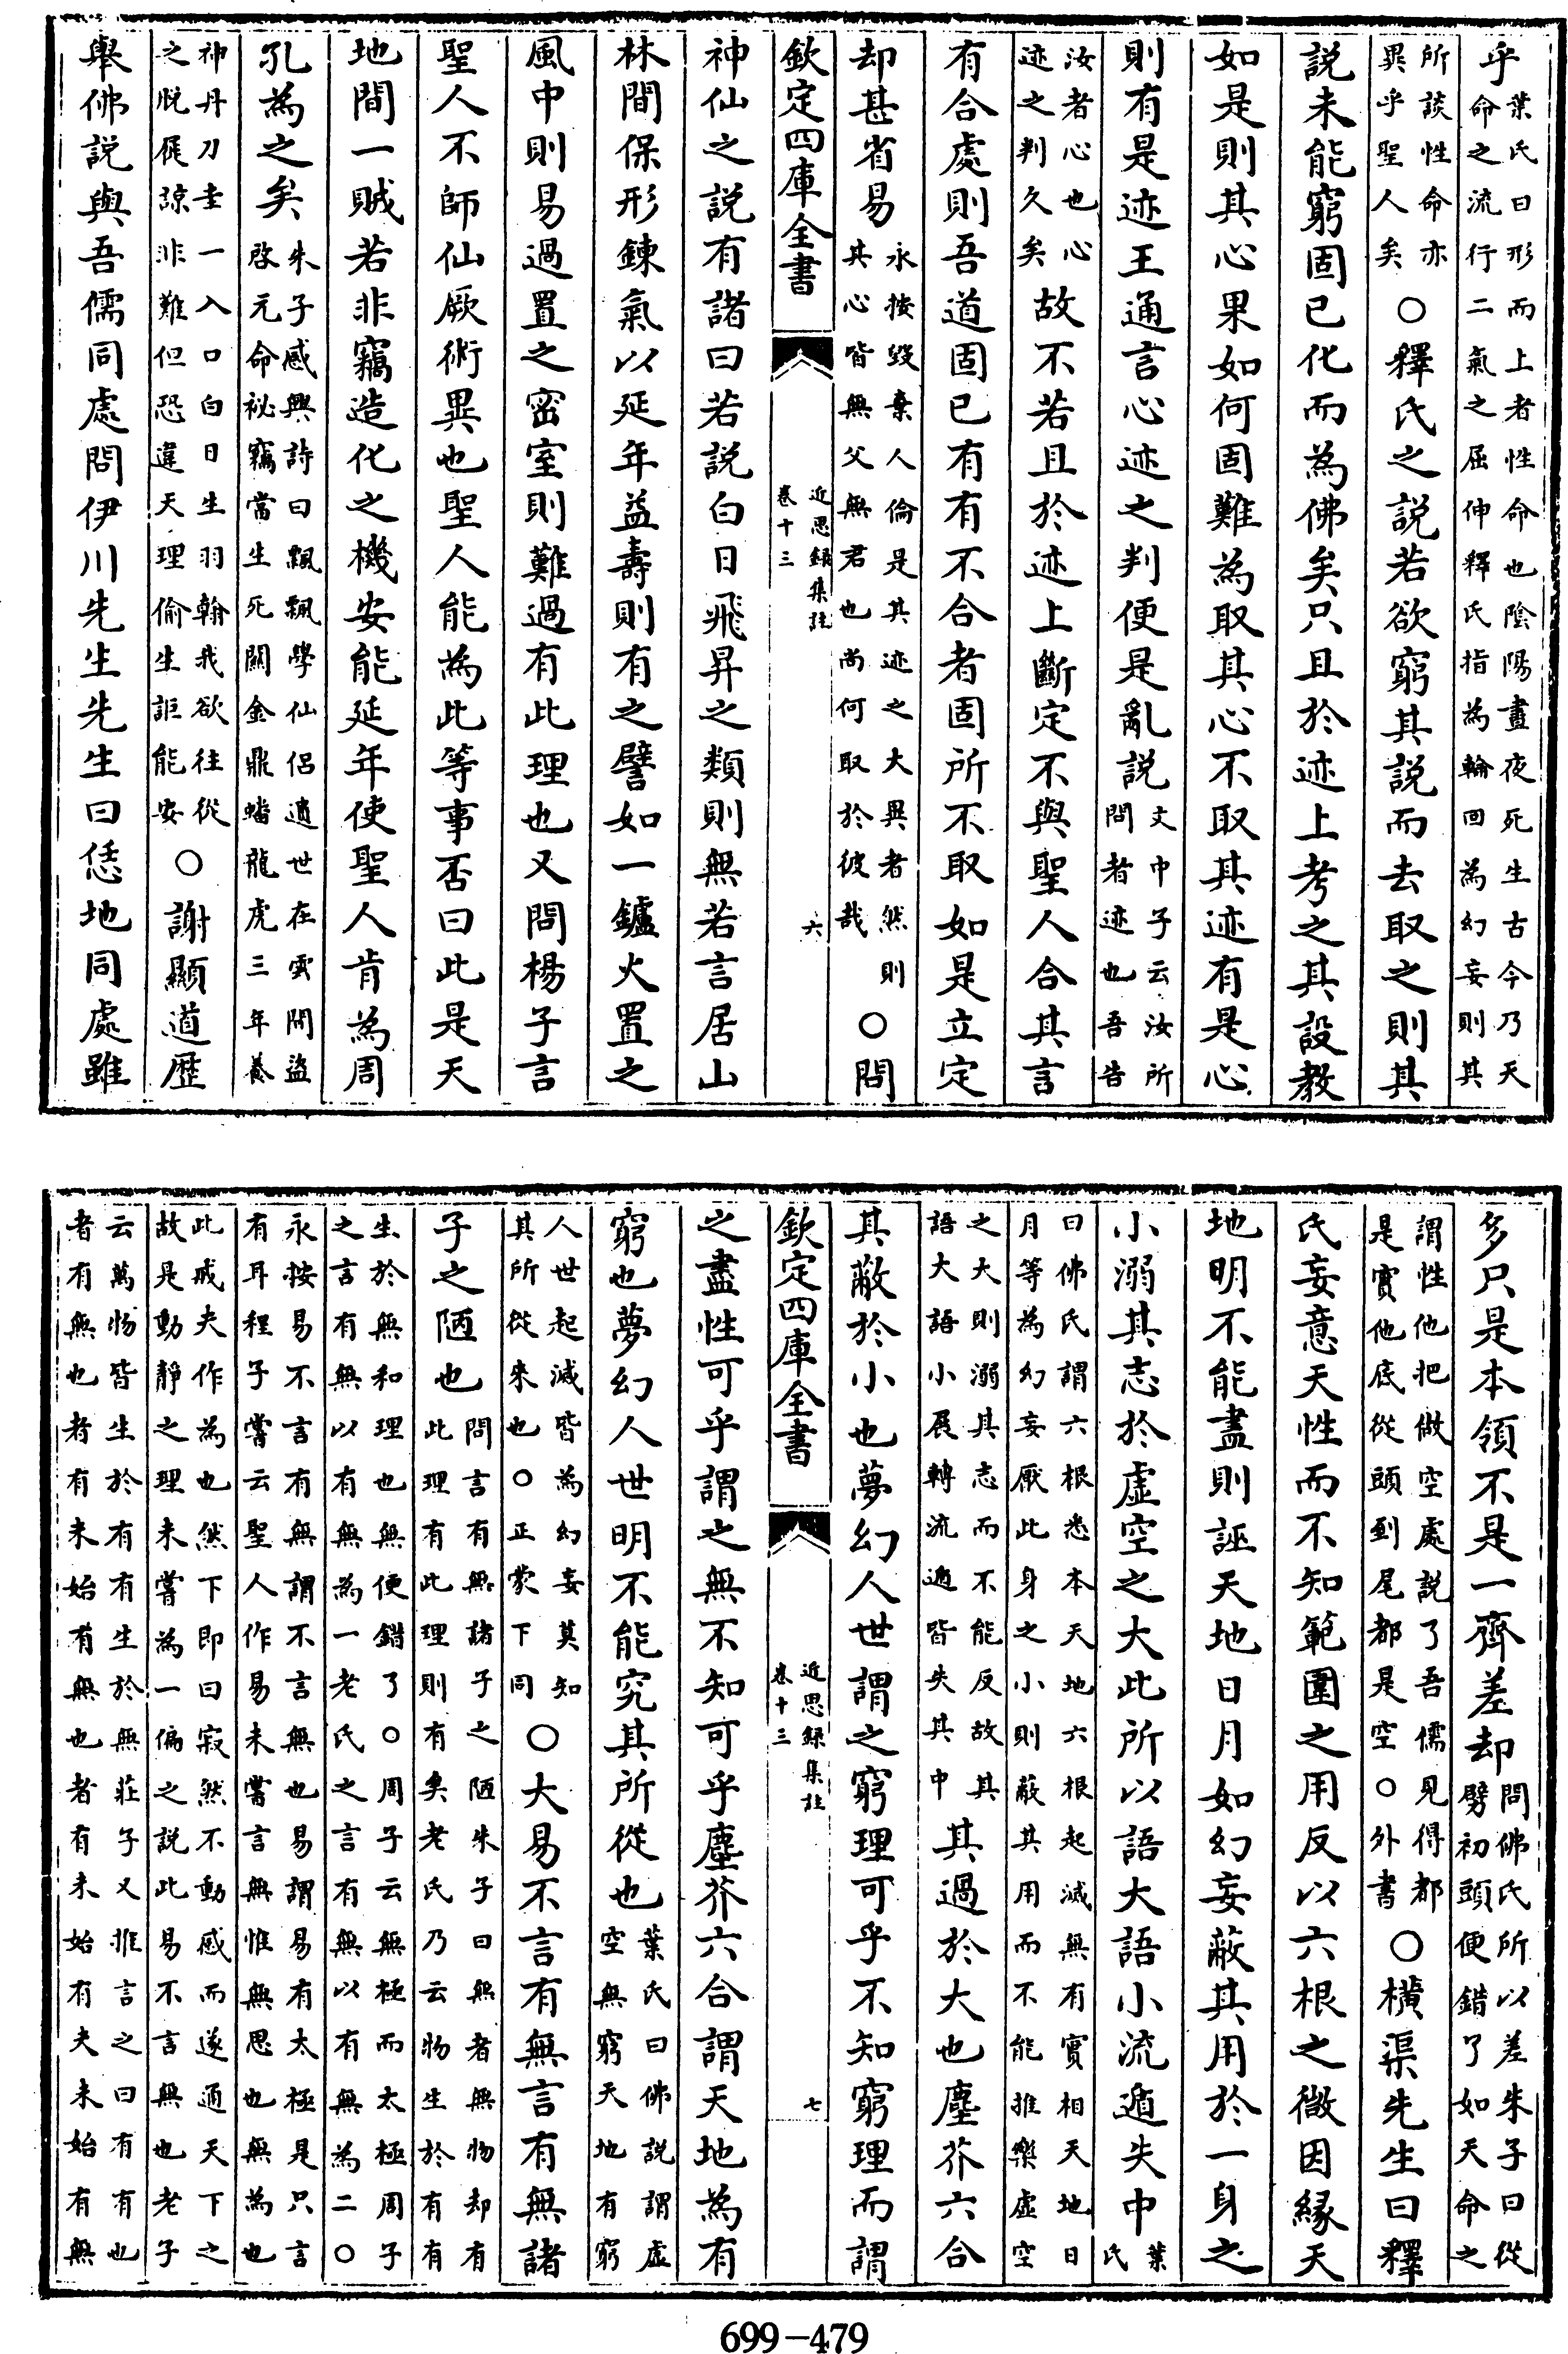 乎葉氏曰形而上者性命也陰陽晝夜死生古今乃天
命之流行二氣之屈伸釋氏指為輪回為幻妄則其
所談性命亦
異乎聖人矣○釋氏之說若欲窮其說而去取之則其
說未能窮固已化而為佛矣只且於迹上考之其設教
如是則其心果如何固難為取其心不取其迹有是心
則有是迹王通言心迹之判便是亂說文中子云汝所
問者迹也吾告
汝者心也心
迹之判久矣故不若且於迹上斷定不與聖人合其言
有合處則吾道固已有有不合者固所不取如是立定
却甚省易永按毀棄人倫是其迹之大異者然則
其心皆無父無君也尚何取於彼哉○問
欽定四庫全書
近思錄集註
卷十三
六
神仙之說有諸曰若說白日飛昇之類則無若言居山
林間保形鍊氣以延年益壽則有之譬如一鑪火置之
風中則易過置之密室則難過有此理也又問楊子言
聖人不師仙厥術異也聖人能為此等事否曰此是天
地間一賊若非竊造化之機安能延年使聖人肯為周
孔為之矣朱子感興詩曰飄飄學仙侶遺世在雲間盜
啓元命祕竊當生死關金鼎蟠龍虎三年養
神丹刀圭一入口白日生羽翰我欲往從
之脫屣諒非難但恐違天理偷生詎能安○謝顯道歷
舉佛說與吾儒同處問伊川先生先生曰恁地同處雖
多只是本領不是一齊差却問佛氏所以差朱子曰從
劈初頭便錯了如天命之
謂性他把做空處說了吾儒見得都
是實他底從頭到尾都是空○外書○橫渠先生曰釋
氏妄意天性而不知範圍之用反以六根之微因緣天
地明不能盡則誣天地日月如幻妄蔽其用於一身之
小溺其志於虛空之大此所以語大語小流遁失中葉
氏
曰佛氏謂六根悉本天地六根起滅無有實相天地日
月等為幻妄厭此身之小則蔽其用而不能推樂虛空
之大則溺其志而不能反故其
語大語小展轉流遁皆失其中其過於大也塵芥六合
其蔽於小也夢幻人世謂之窮理可乎不知窮理而謂
欽定四庫全書
近思錄集註
卷十三
七
之盡性可乎謂之無不知可乎塵芥六合謂天地為有
窮也夢幻人世明不能究其所從也葉氏曰佛說謂虛
空無窮天地有窮
人世起滅皆為幻妄莫知
其所從來也○正蒙下同○大易不言有無言有無諸
子之陋也問言有無諸子之陋朱子曰無者無物却有
此理有此理則有矣老氏乃云物生於有有
生於無和理也無便錯了○周子云無極而太極周子
之言有無以有無為一老氏之言有無以有無為二○
永按易不言有無謂不言無也易謂易有太極是只言
有耳程子嘗云聖人作易未嘗言無惟無思也無為也
此戒夫作為也然下即曰寂然不動感而遂通天下之
故是動靜之理未嘗為一偏之說此易不言無也老子
云萬物皆生於有有生於無莊子又推言之曰有有也
者有無也者有未始有無也者有未始有夫未始有無
699-479